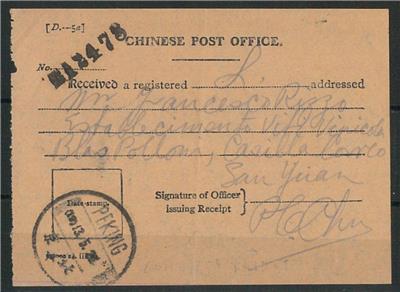 [D.—5a]
CHINESE POST OFFICE.
No. 12478
Received a registered L. addressed
Francesco Rizzo
Establecimento Viti Vinicola
Blas Pollona, Casilla Correo
San Juan
Date-stamp.
PEKING
13.5.
Signature of Officer
issuing Receipt